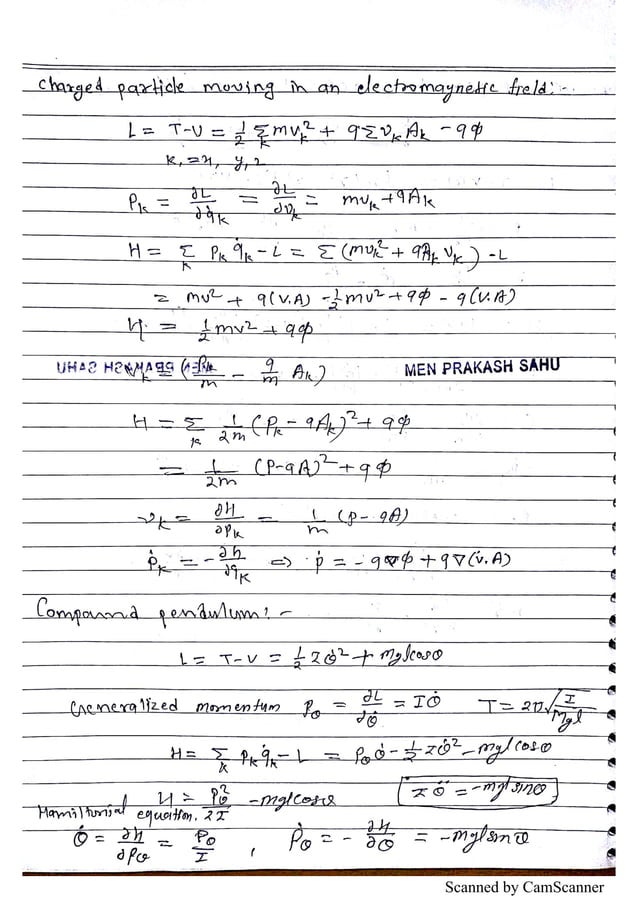 Charged particle moving in an electromagnetic field:-
L = T-U = 1/2 Σ_k mv_k² + qΣv_k A_k - qϕ
k, = x, y, z
P_k = ∂L/∂q̇_k = ∂L/∂v_k = mv_k + qA_k
H = Σ_k P_k q̇_k - L = Σ(mv_k² + qA_k v_k) - L
= mv² + q(v.A) - 1/2 mv² + qϕ - q(v.A)
H = 1/2 mv² + qϕ
/m - q/m A_k)
MEN PRAKASH SAHU
H = Σ_k 1/2m (P_k - qA_k)² + qϕ
= 1/2m (P-qA)² + qϕ
v_k = ∂H/∂p_k = 1/m (p - qA)
ṗ_k = -∂h/∂q_k ⇒ ṗ = -q∇ϕ + q∇(v.A)
Compound pendulum:-
L = T-U = 1/2 Iθ̇² + mglcosθ
Generalized momentum P_θ = ∂L/∂θ̇ = Iθ̇ T = 2π√(I/Mgl)
H = Σ_k P_k q̇_k - L = P_θ θ̇ - 1/2 Iθ̇² - mglcosθ
H = P_θ²/2I - mglcosθ Iθ̈ = -mglsinθ
Hamiltonial equation.
θ̇ = ∂h/∂p_θ = P_θ/I , Ṗ_θ = -∂H/∂θ = -mglsinθ
Scanned by CamScanner